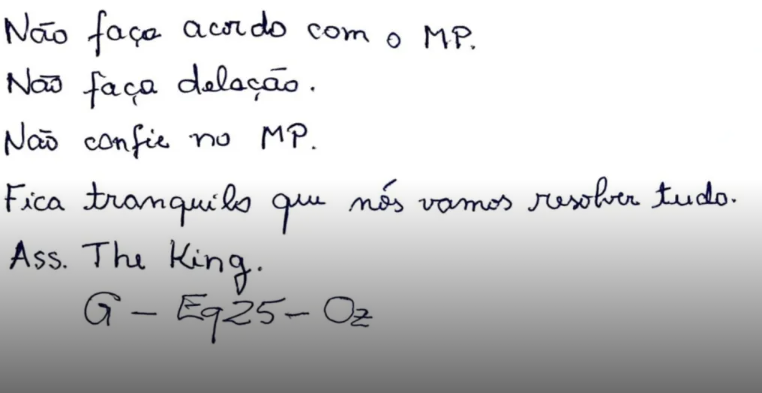 Não faça acordo com o MP.
Não faça delação.
Não confie no MP.
Fica tranquilo que nós vamos resolver tudo.
Ass. The King.
G - Eq25 - Oz